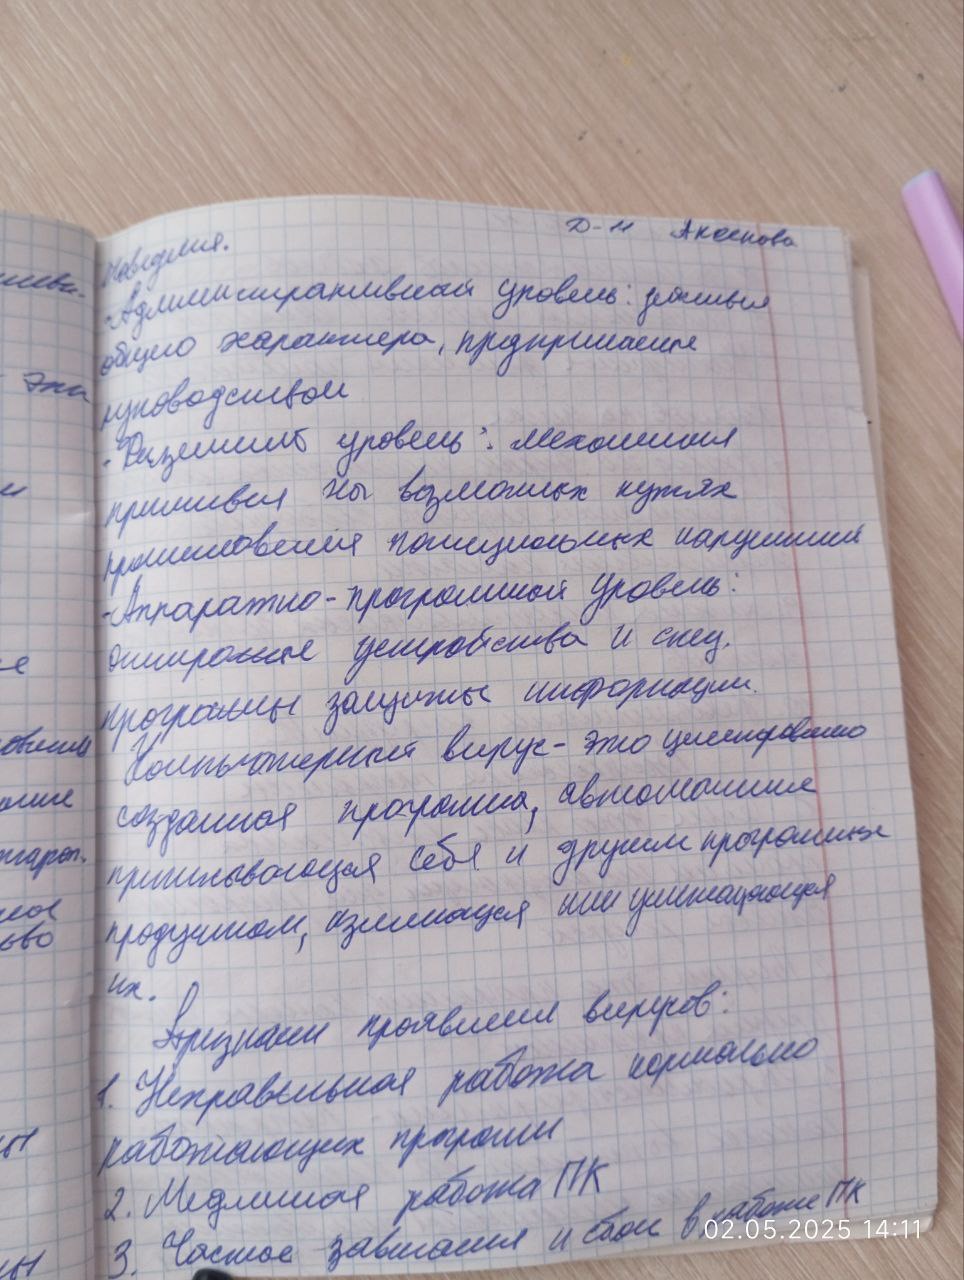 Д-11 Аксенова
поведения.
-Административный уровень: действия
общего характера, предпринимаемые
руководством
-Физический уровень: механические
препятствия на возможных путях
проникновения потенциальных нарушителей
-Аппаратно-программный уровень:
устройства и спец.
программы защиты информации.
Компьютерный вирус - это целенаправленно
созданная программа, автоматически
приписывающая себя к другим программным
продуктам, изменяющая или уничтожающая
их.
Признаки проявления вирусов:
1. Неправильная работа нормально
работающих программ
2. Медленная работа ПК
3. Частые зависания и сбои в работе ПК
эти
02.05.2025 14:11